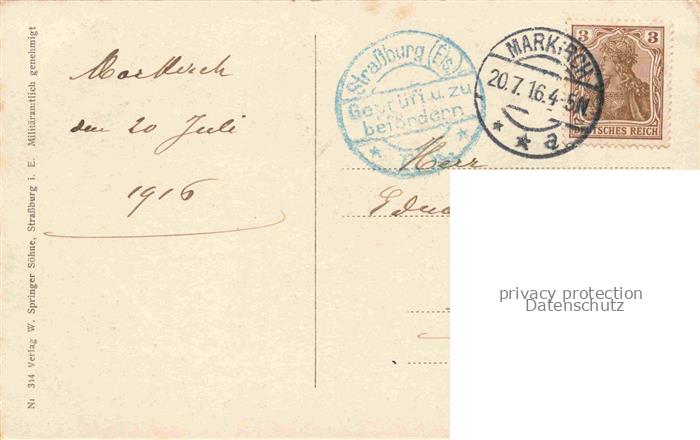 Nr 314 Verlag W. Springer Söhne, Straßburg i. E. Militäramtlich genehmigt
Markirch
den 20 Juli
1916
Straßburg (Els)
Geprüft u. zu
befördern
MARKIRCH
20.7.16.4-5N
a
3 3
DEUTSCHES REICH
Herr
privacy protection
Datenschutz